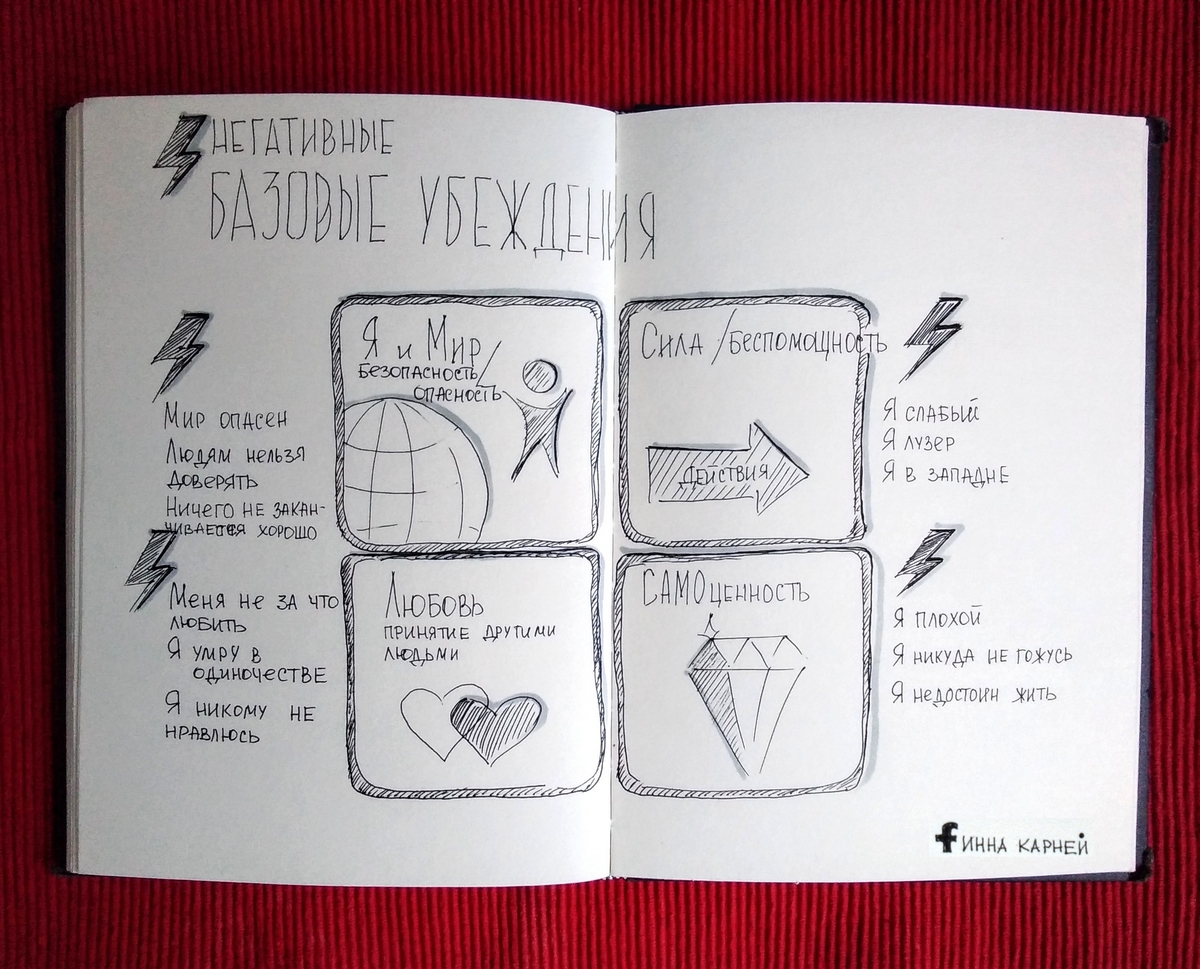 НЕГАТИВНЫЕ
БАЗОВЫЕ УБЕЖДЕНИЯ
Я и Мир/
БЕЗОПАСНОСТЬ/
ОПАСНОСТЬ
Мир опасен
Людям нельзя
доверять
Ничего не закан-
чивается хорошо
Сила /беспомощность
Действия
Я слабый
Я лузер
Я в западне
Любовь
принятие другими
людьми
Меня не за что
любить
Я умру в
одиночестве
Я никому не
нравлюсь
САМОценность
Я плохой
Я никуда не гожусь
Я недостоин жить
f ИННА КАРНЕЙ